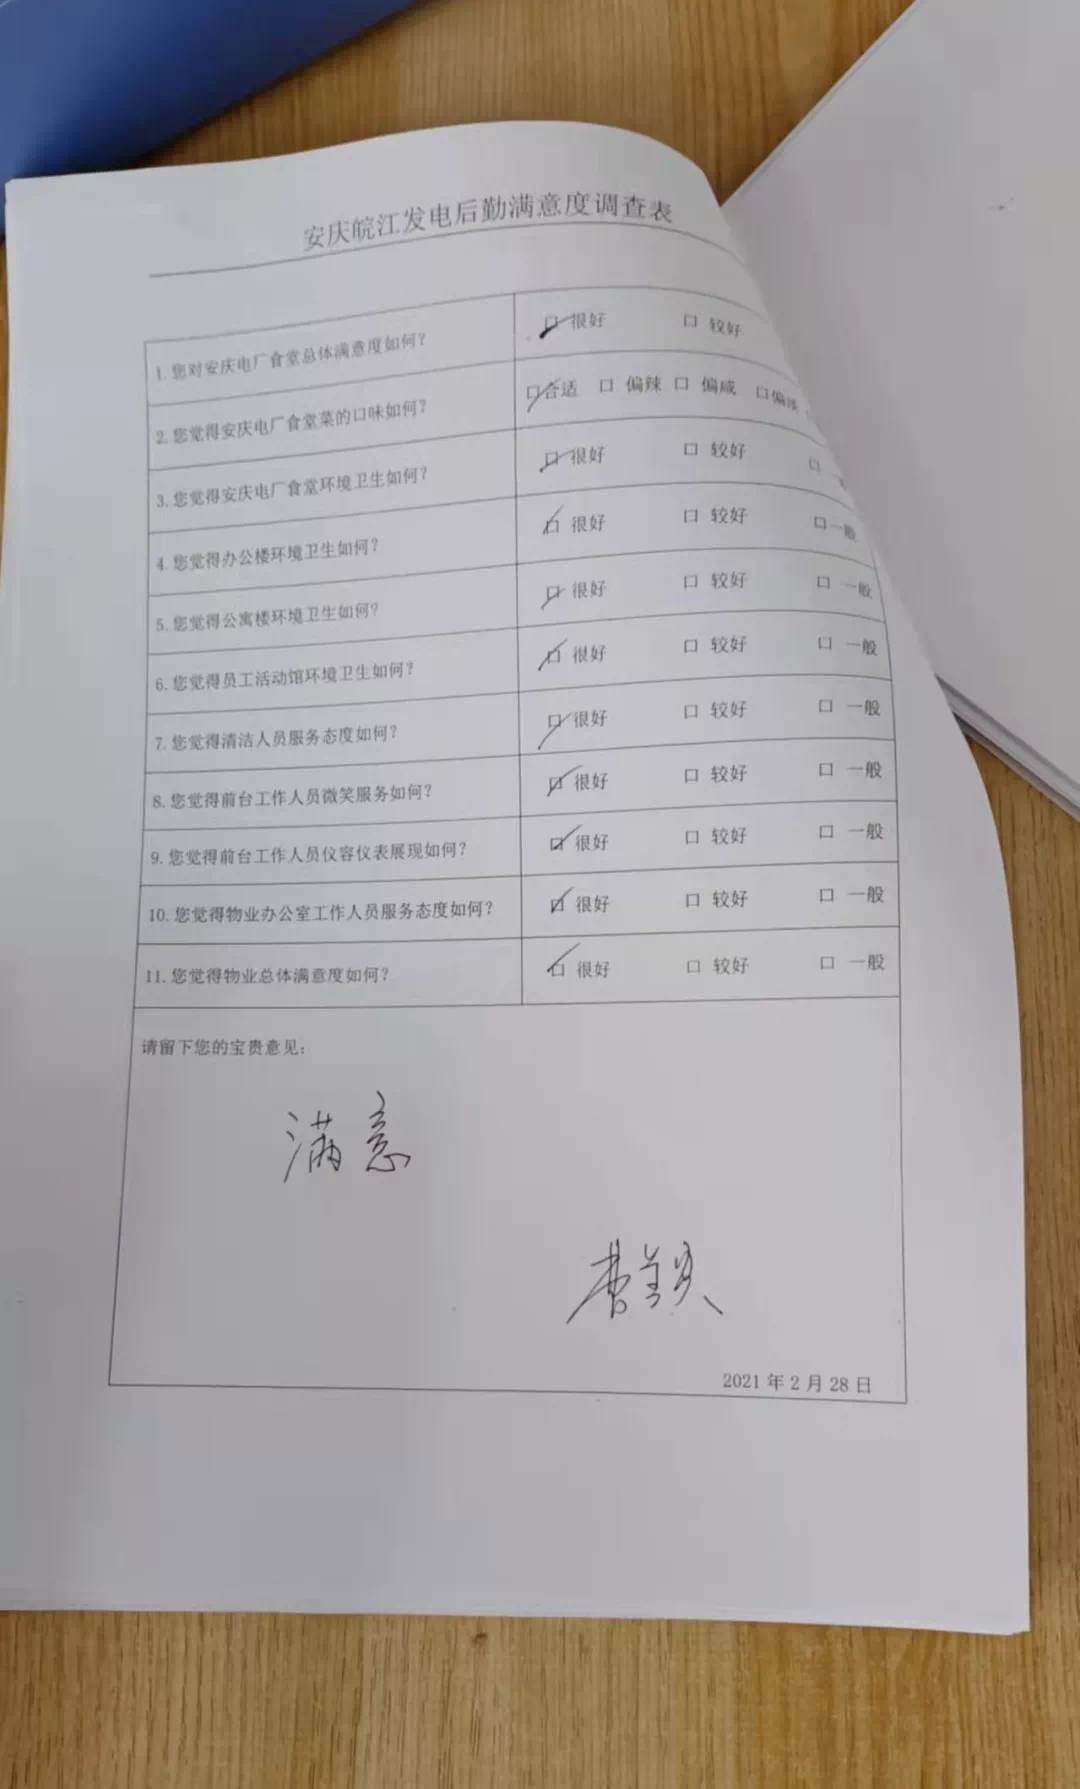 安庆皖江发电后勤满意度调查表
1.您对安庆电厂食堂总体满意度如何? 口 很好 口 较好
2.您觉得安庆电厂食堂菜的口味如何? 口合适 口 偏辣 口 偏咸 口偏淡
3.您觉得安庆电厂食堂环境卫生如何? 口 很好 口 较好 口
4.您觉得办公楼环境卫生如何? 口 很好 口 较好 口一般
5.您觉得公寓楼环境卫生如何? 口 很好 口 较好 口 一般
6.您觉得员工活动馆环境卫生如何? 口 很好 口 较好 口 一般
7.您觉得清洁人员服务态度如何? 口 很好 口 较好 口 一般
8.您觉得前台工作人员微笑服务如何? 口 很好 口 较好 口 一般
9.您觉得前台工作人员仪容仪表展现如何? 口 很好 口 较好 口 一般
10.您觉得物业办公室工作人员服务态度如何? 口 很好 口 较好 口 一般
11.您觉得物业总体满意度如何? 口 很好 口 较好 口 一般
请留下您的宝贵意见:
满意
2021 年 2 月 28 日